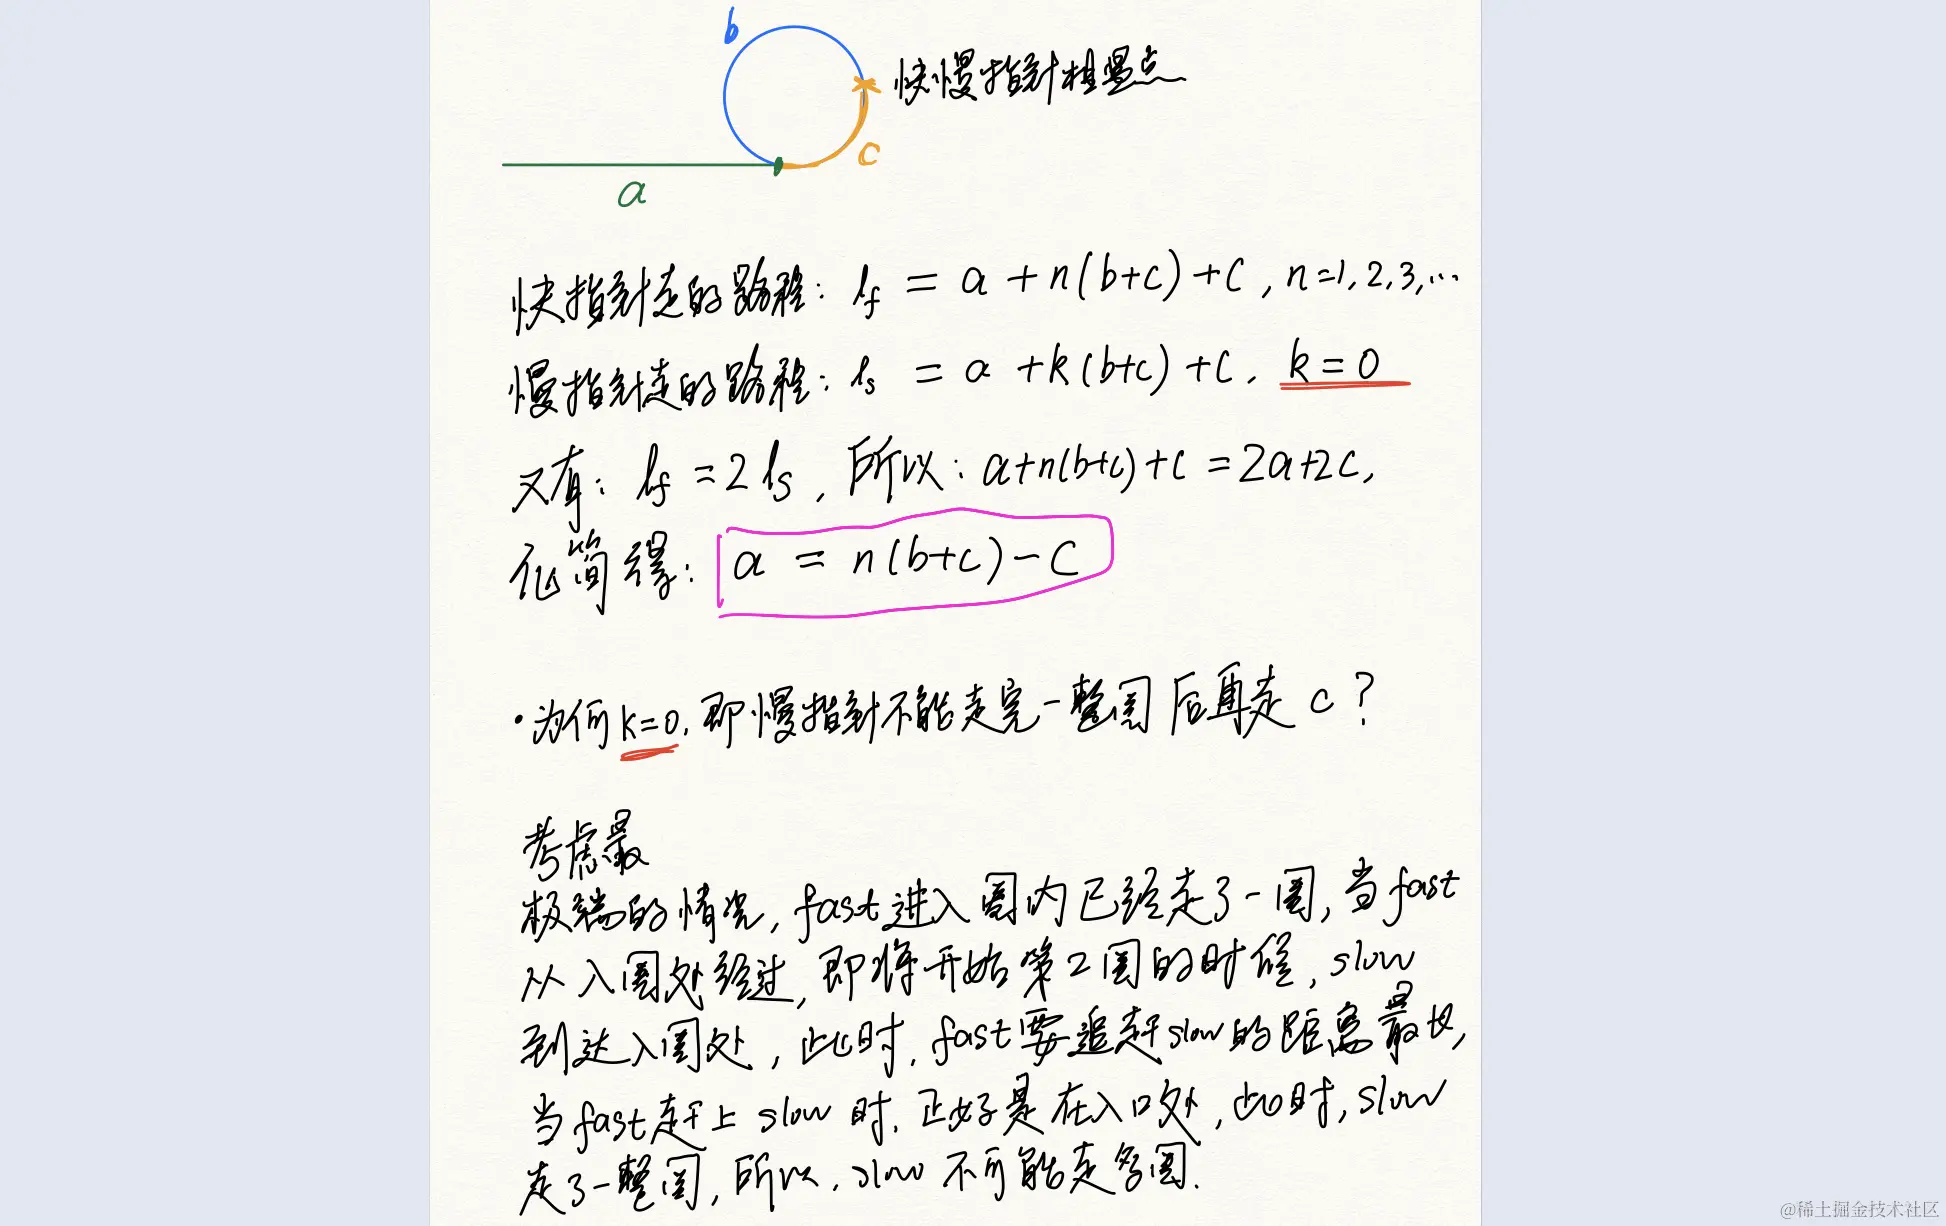 b
快慢指针相遇点
c
a
快指针走的路程: lf = a + n(b+c) + c, n=1,2,3,...
慢指针走的路程: ls = a + k(b+c) + c. k=0
又有: lf = 2ls, 所以: a+n(b+c)+c = 2a+2c,
化简得: a = n(b+c) - c
•为何k=0, 即慢指针不能走完一整圈后再走c?
考虑最
极端的情况, fast进入圈内已经走了一圈, 当fast
从入圈处经过, 即将开始第2圈的时候, slow
到达入圈处, 此时, fast要追赶slow的距离最长,
当fast赶上slow时. 正好是在入口处, 此时, slow
走了一整圈, 所以, slow不可能走多圈.
@稀土掘金技术社区